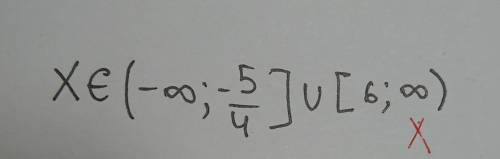 X∈(-∞;-5/4]∪[6;∞)
X